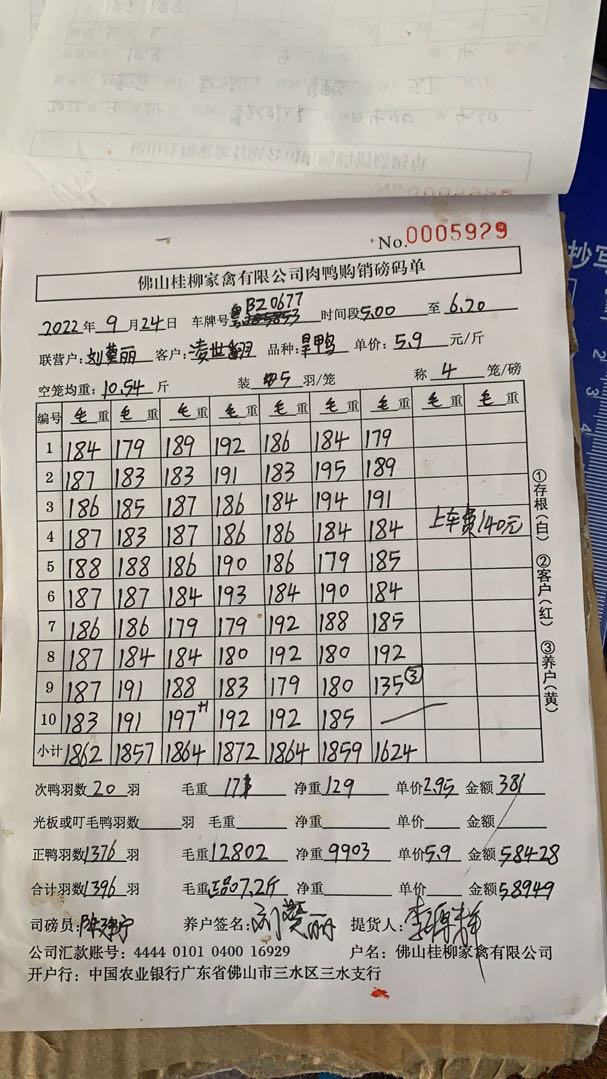 No. 0005929
佛山桂柳家禽有限公司肉鸭购销磅码单
2022年 9月24日 车牌号 粤BZ0677 时间段 5.00 至 6.20
联营户: 刘蓂丽 客户: 凌世翻 品种: 旱鸭 单价: 5.9 元/斤
空笼均重: 10.54 斤 装 5 羽/笼 称 4 笼/磅
编号 毛重 毛重 毛重 毛重 毛重 毛重 毛重 毛重 毛重
1 184 179 189 192 186 184 179
2 187 183 183 191 183 195 189
3 186 185 187 186 184 194 191
4 187 183 187 186 186 184 184 上车费140元
5 188 188 186 190 186 179 185
6 187 187 184 193 184 190 184
7 186 186 179 179 192 188 185
8 187 184 184 180 192 180 192
9 187 191 188 183 179 180 135 ③
10 183 191 197 +1 192 192 185
小计 1862 1857 1864 1872 1864 1859 1624
①存根(白) ②客户(红) ③养户(黄)
次鸭羽数 20 羽 毛重 171 净重 129 单价 2.95 金额 381
光板或叮毛鸭羽数 羽 毛重 净重 单价 金额
正鸭羽数 1376 羽 毛重 12802 净重 9903 单价 5.9 金额 58428
合计羽数 1396 羽 毛重 正品7.2斤 净重 单价 金额 58949
司磅员: 养户签名: 刘蓂丽 提货人:
公司汇款账号: 4444 0101 0400 16929 户名: 佛山桂柳家禽有限公司
开户行: 中国农业银行广东省佛山市三水区三水支行
抄写